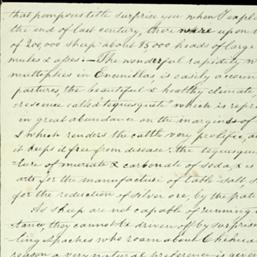 that pompous title surprise you when I expla
the end of last century, there were upon
of 200,000 sheep about 15000 heads of large
mules & asses.— The wonderful rapidity w
multiplies in Encinillas is easily accoun
pastures the beautiful & healthy climate,
crescence called tequesquite which is repre
in great abundance on the margins of
& which renders the cattle very prolific, an
it keeps it free from disease. the tequesqui
ture of muriate & carbonate of soda, & is
als for the manufacture of table salt, s
for the reduction of silver ore, by the pat
As sheep are not capable of running
stance, they cannot be driven off by surprise
ling Apaches who roam about Chihua
reason a very natural preference is give